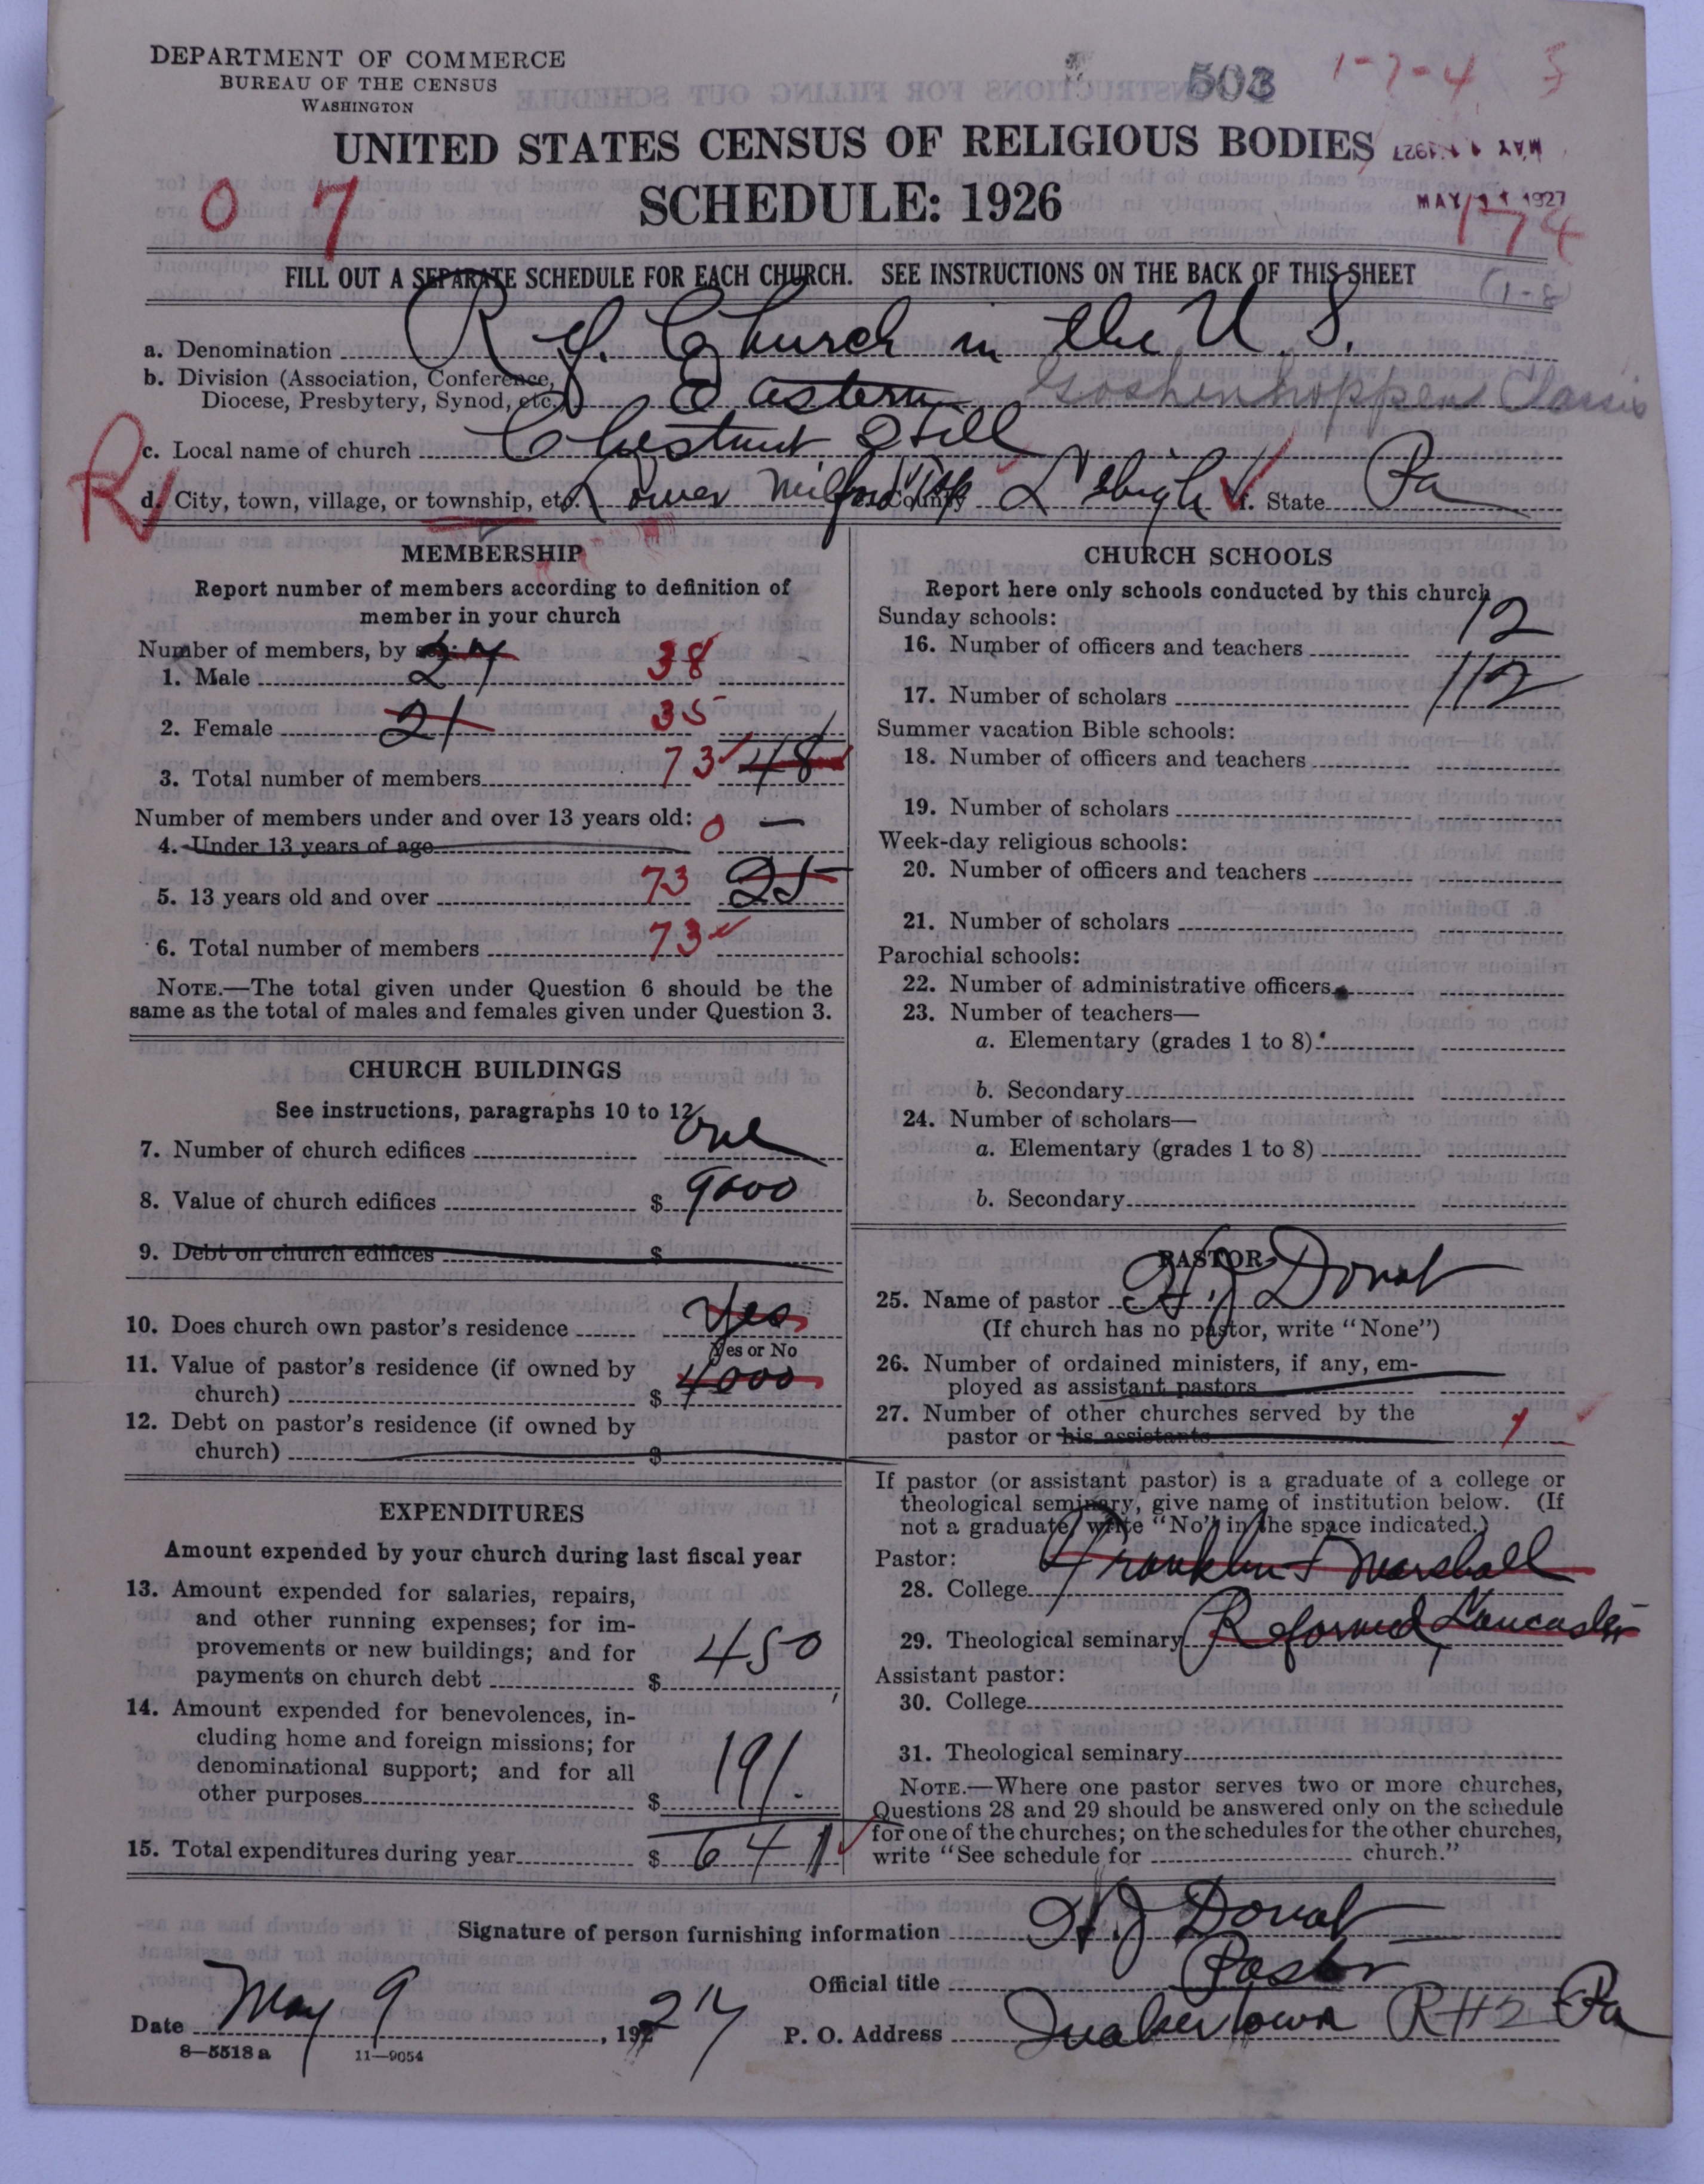 DEPARTMENT OF COMMERCE
BUREAU OF THE CENSUS
WASHINGTON
503
1-7-4
UNITED STATES CENSUS OF RELIGIOUS BODIES
MAY 11 1927
SCHEDULE: 1926
MAY 11 1927
0 7
174
FILL OUT A SEPARATE SCHEDULE FOR EACH CHURCH. SEE INSTRUCTIONS ON THE BACK OF THIS SHEET
(1-8)
a. Denomination Ref. Church in the U. S.
b. Division (Association, Conference,
Diocese, Presbytery, Synod, etc.) Eastern Goshenhoppen Classis
c. Local name of church Chestnut Hill
R
d. City, town, village, or township, etc. Lower Milford Twp County Lehigh f. State Pa
MEMBERSHIP
Report number of members according to definition of
member in your church
Number of members, by sex:
1. Male 27 38
2. Female 21 35
3. Total number of members 73 48
Number of members under and over 13 years old:
4. Under 13 years of age 0 —
5. 13 years old and over 73 25
6. Total number of members 73
NOTE.—The total given under Question 6 should be the
same as the total of males and females given under Question 3.
CHURCH BUILDINGS
See instructions, paragraphs 10 to 12
7. Number of church edifices one
8. Value of church edifices $ 9000
9. Debt on church edifices $
10. Does church own pastor's residence Yes
Yes or No
11. Value of pastor's residence (if owned by
church) $ 4000
12. Debt on pastor's residence (if owned by
church) $
EXPENDITURES
Amount expended by your church during last fiscal year
13. Amount expended for salaries, repairs,
and other running expenses; for im-
provements or new buildings; and for
payments on church debt $ 450
14. Amount expended for benevolences, in-
cluding home and foreign missions; for
denominational support; and for all
other purposes $ 191.
15. Total expenditures during year $ 641
CHURCH SCHOOLS
Report here only schools conducted by this church
Sunday schools:
16. Number of officers and teachers 12
17. Number of scholars 112
Summer vacation Bible schools:
18. Number of officers and teachers
19. Number of scholars
Week-day religious schools:
20. Number of officers and teachers
21. Number of scholars
Parochial schools:
22. Number of administrative officers
23. Number of teachers—
a. Elementary (grades 1 to 8)
b. Secondary
24. Number of scholars—
a. Elementary (grades 1 to 8)
b. Secondary
PASTOR
25. Name of pastor H. J. Donat
(If church has no pastor, write "None")
26. Number of ordained ministers, if any, em-
ployed as assistant pastors
27. Number of other churches served by the
pastor or his assistants 1
If pastor (or assistant pastor) is a graduate of a college or
theological seminary, give name of institution below. (If
not a graduate, write "No" in the space indicated.)
Pastor:
28. College Franklin & Marshall
29. Theological seminary Reformed, Lancaster
Assistant pastor:
30. College
31. Theological seminary
NOTE.—Where one pastor serves two or more churches,
Questions 28 and 29 should be answered only on the schedule
for one of the churches; on the schedules for the other churches,
write "See schedule for church."
Signature of person furnishing information H J Donat
Official title Pastor
Date May 9, 1927
P. O. Address Quakertown R#2 Pa
8—5518 a 11—9054